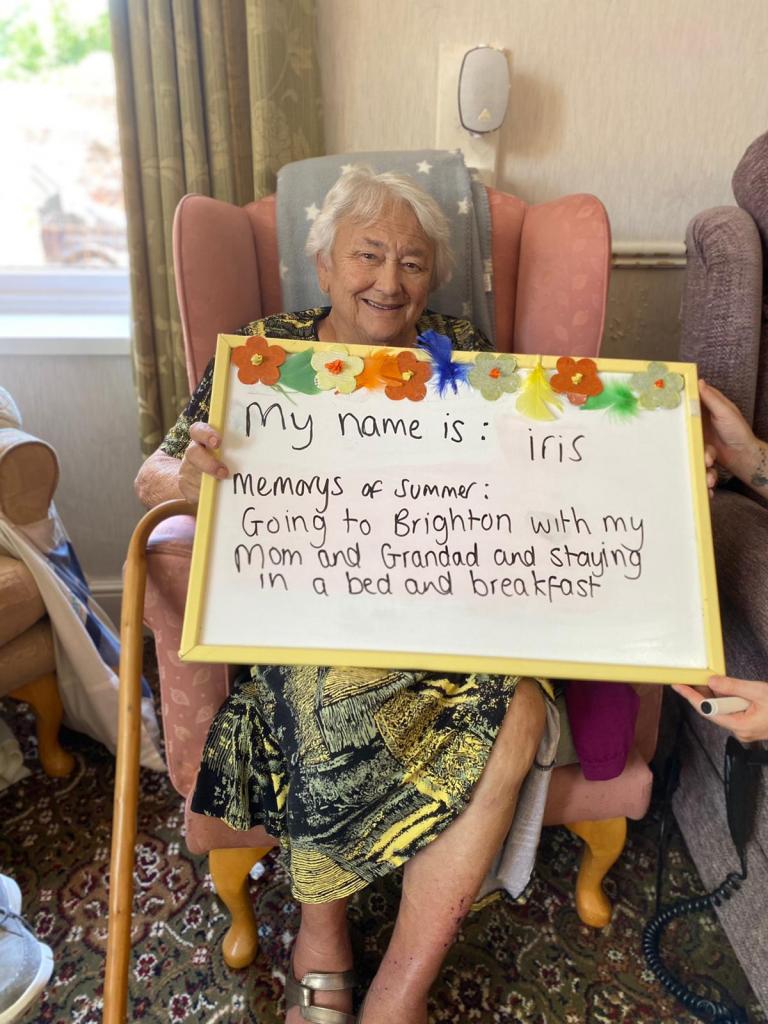 My name is: iris
Memorys of summer:
Going to Brighton with my
Mom and Grandad and staying
in a bed and breakfast